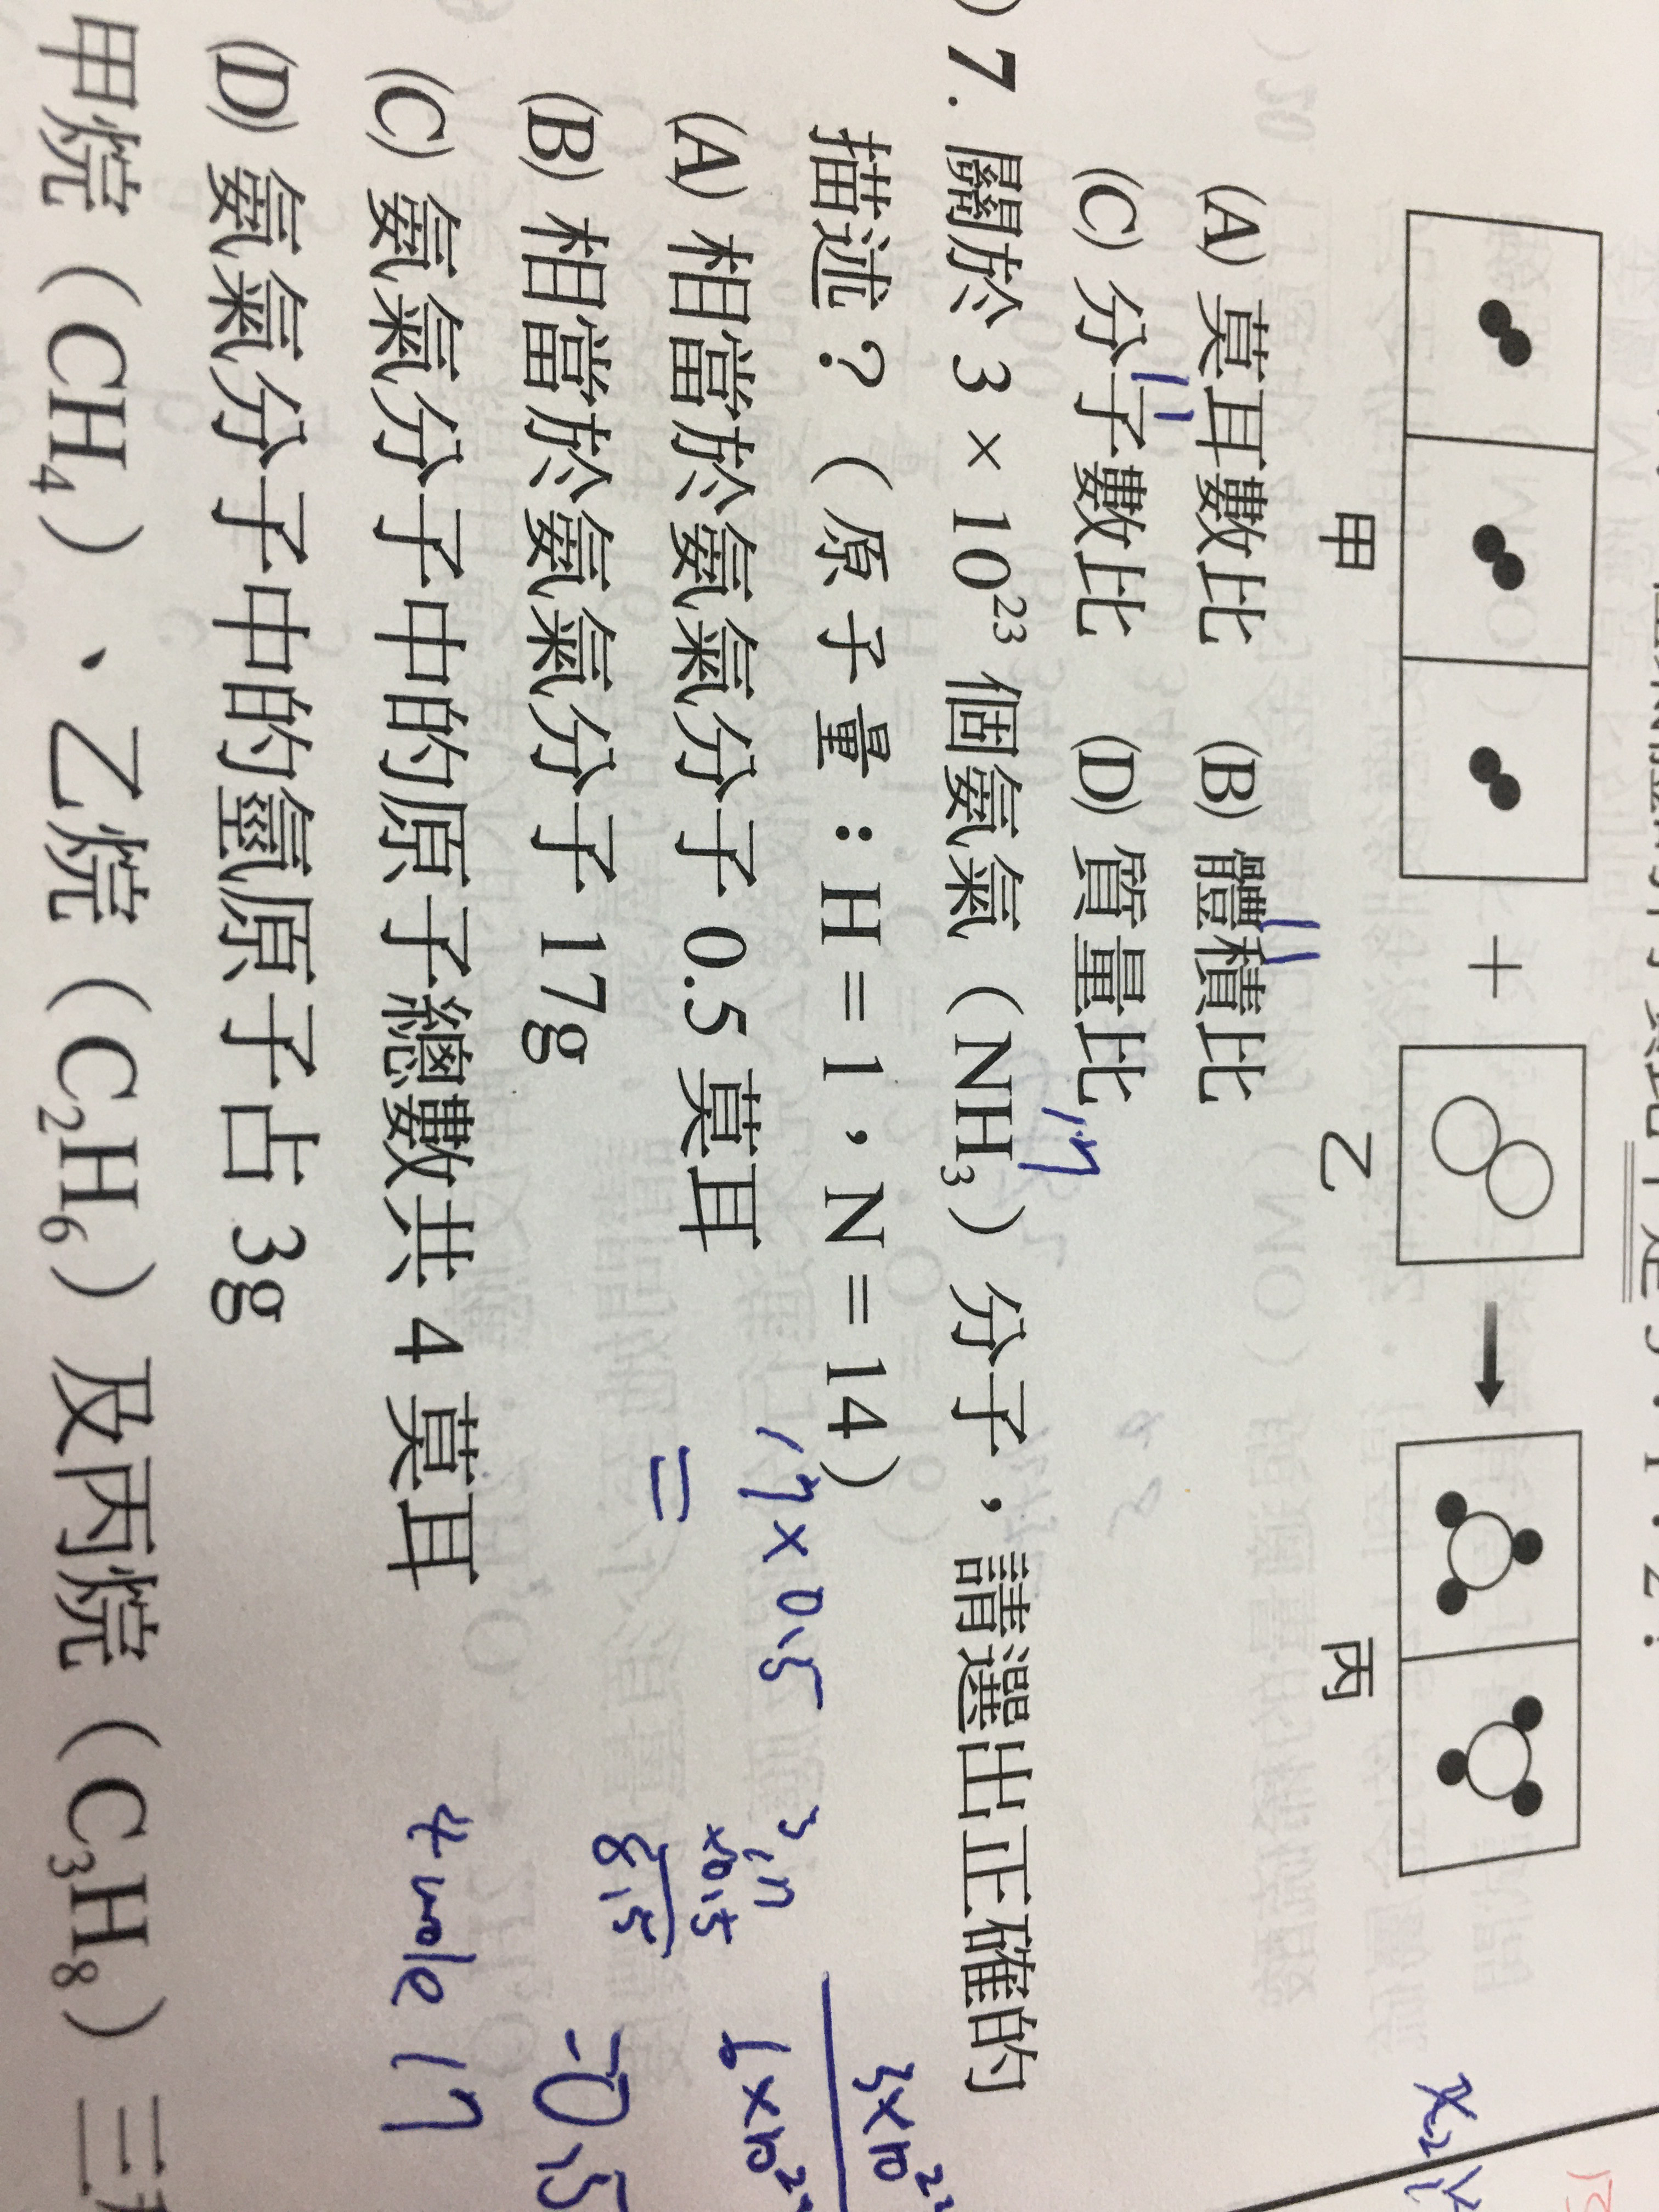 甲 + 乙 → 丙
(A) 莫耳數比 (B) 體積比
(C) 分子數比 (D) 質量比
7. 關於 3 × 10²³ 個氨氣（NH₃）分子，請選出正確的
描述？（原子量：H = 1，N = 14）
(A) 相當於氨氣分子 0.5 莫耳
(B) 相當於氨氣分子 17g
(C) 氨氣分子中的原子總數共 4 莫耳
(D) 氨氣分子中的氫原子占 3g
甲烷（CH₄）、乙烷（C₂H₆）及丙烷（C₃H₈）三
17
17 × 0.5
=
17
×0.5
8.5
3×10²³
6×10²³
=0.5
4 mole 17